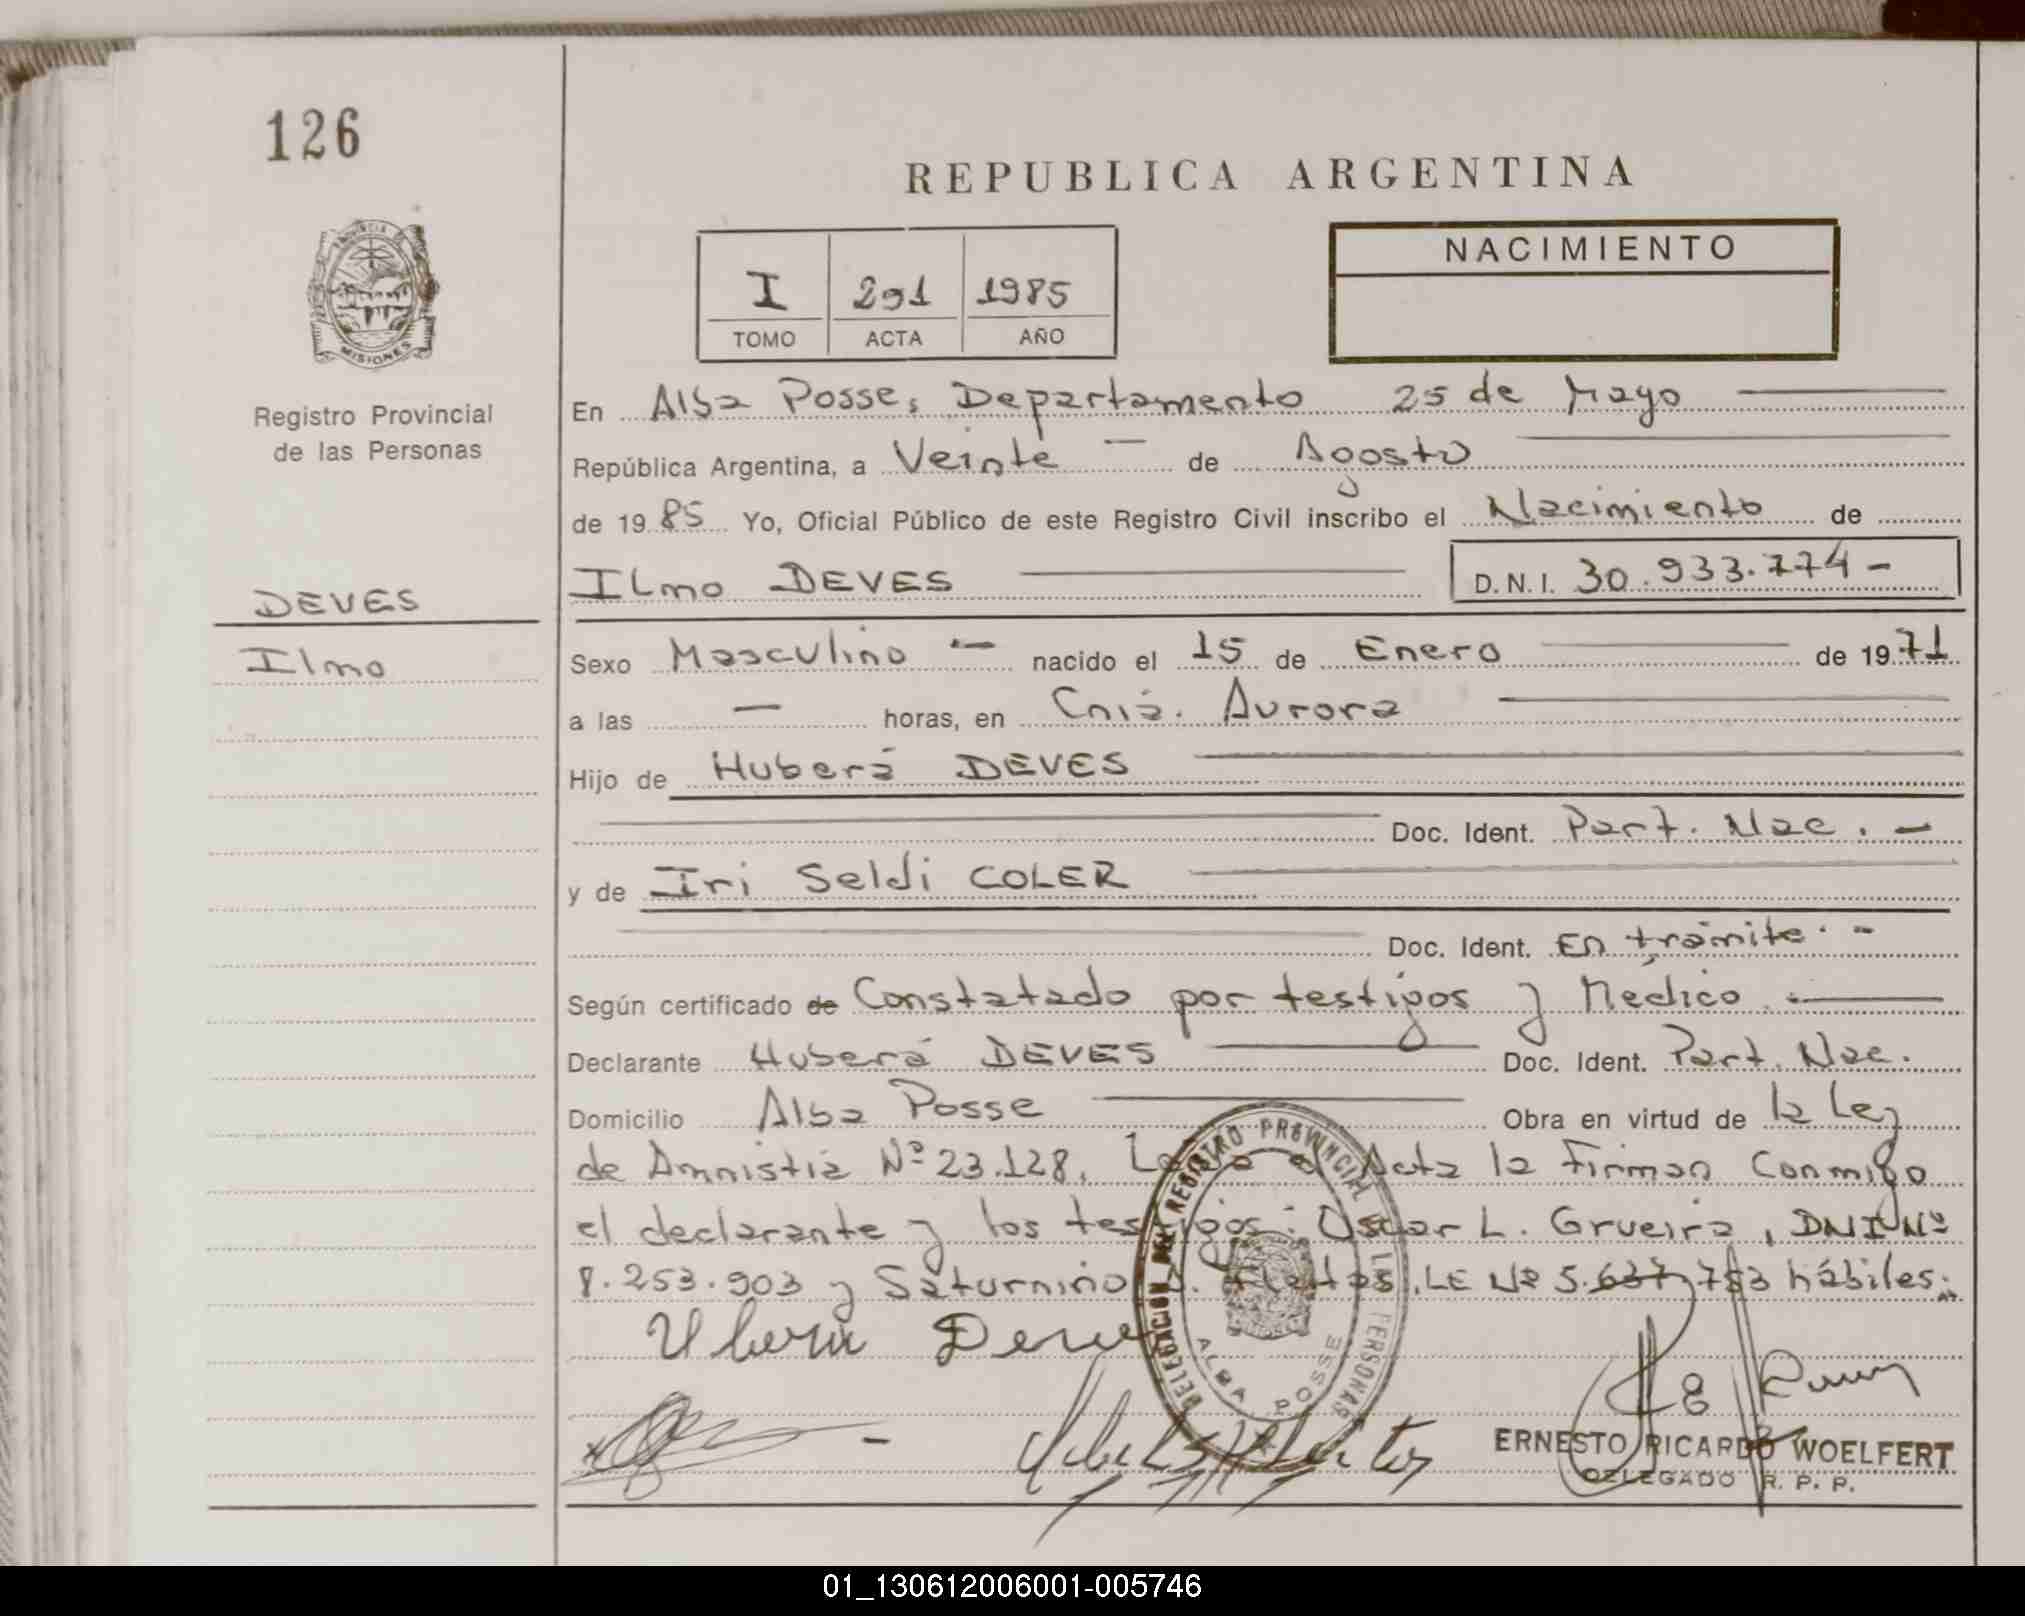 126
REPUBLICA ARGENTINA
PROVINCIA DE
MISIONES
Registro Provincial
de las Personas
DEVES
Ilmo
I 291 1985
TOMO ACTA AÑO
NACIMIENTO
En Alba Posse, Departamento 25 de Mayo
República Argentina, a Veinte — de Agosto
de 1985 Yo, Oficial Público de este Registro Civil inscribo el Nacimiento de
Ilmo DEVES D.N.I. 30.933.774-
Sexo Masculino — nacido el 15 de Enero de 1971
a las — horas, en Cniá. Aurora
Hijo de Huberá DEVES
Doc. Ident. Part. Nac. -
y de Iri Seldi COLER
Doc. Ident. En trámite. -
Según certificado de Constatado por testigos y Médico.
Declarante Huberá DEVES Doc. Ident. Part. Nac.
Domicilio Alba Posse Obra en virtud de la Ley
de Amnistia Nº 23.128. Acta la Firman Conmigo
el declarante y los testigos: Oscar L. Grueira, DNI Nº
8.253.903 y Saturnino LE Nº 5.637.753 hábiles.
DELEGACION DEL REGISTRO PROVINCIAL DE LAS PERSONAS
ALBA POSSE
ERNESTO RICARDO WOELFERT
DELEGADO R. P. P.
01_130612006001-005746